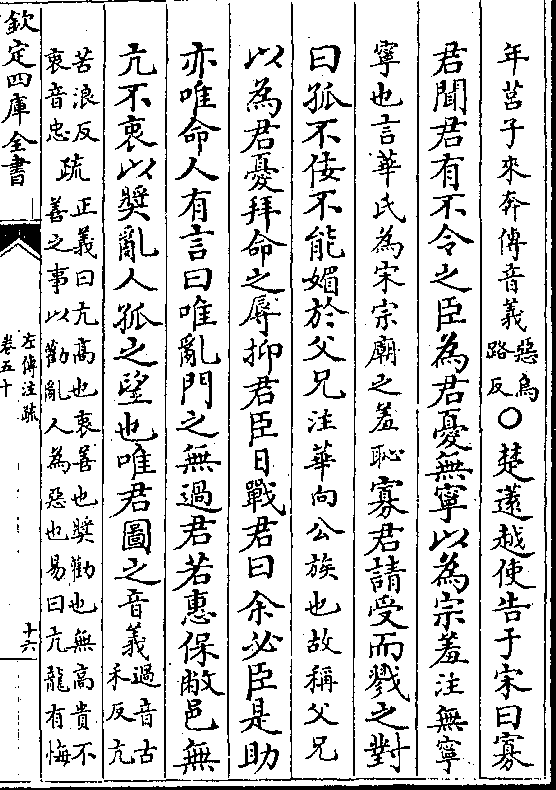 年莒子來奔傳音義惡烏路反○楚薳越使告于宋曰寡
君聞君有不令之臣為君憂無寧以為宗羞注無寧
寧也言華氏為宋宗廟之羞恥寡君請受而戮之對
曰孤不佞不能媚於父兄注華向公族也故稱父兄
以為君憂拜命之辱抑君臣日戰君曰余必臣是助
亦唯命人有言曰唯亂門之無過君若惠保敝邑無
亢不衷以奬亂人孤之望也唯君圖之音義過音古禾反亢
苦浪反衷音忠疏正義曰亢高也衷善也奬勸也無高貴不善之事以勸亂人為惡也易曰亢龍有悔
欽定四庫全書
左傳注疏
卷五十
十六